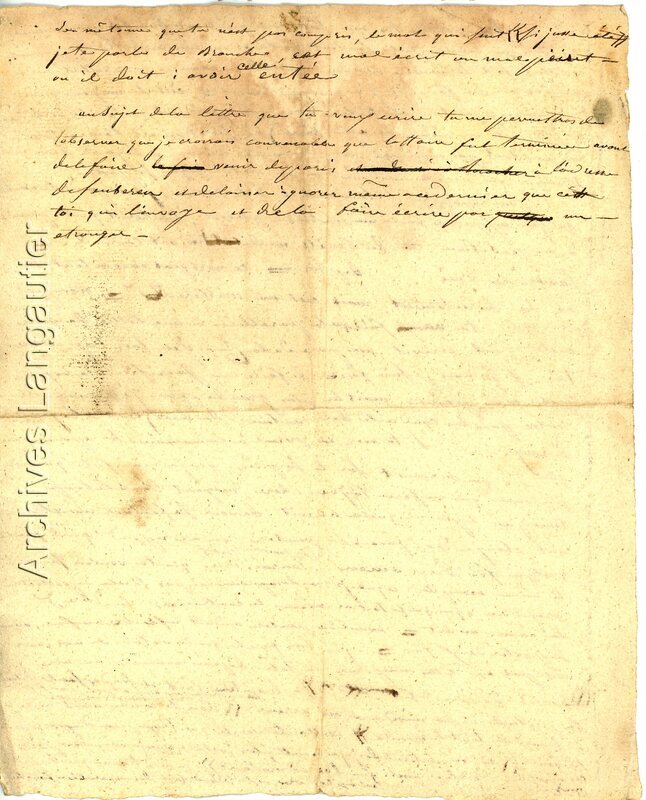 tu n'as pas compris, le mot qui suit
je te parle de Branche, est mal écrit
celle
ou il doit : avoir entée
au sujet de la lettre que tu veux écrire tu me permettras de
t'observer que je croirais convenable que l'affaire fut terminée avant
de la faire venir de paris à l'adresse
de et de laisser ignorer même a ce dernier que c'est
toi qui l'envoye et de la faire écrire par un
etranger _
Archives Langautier